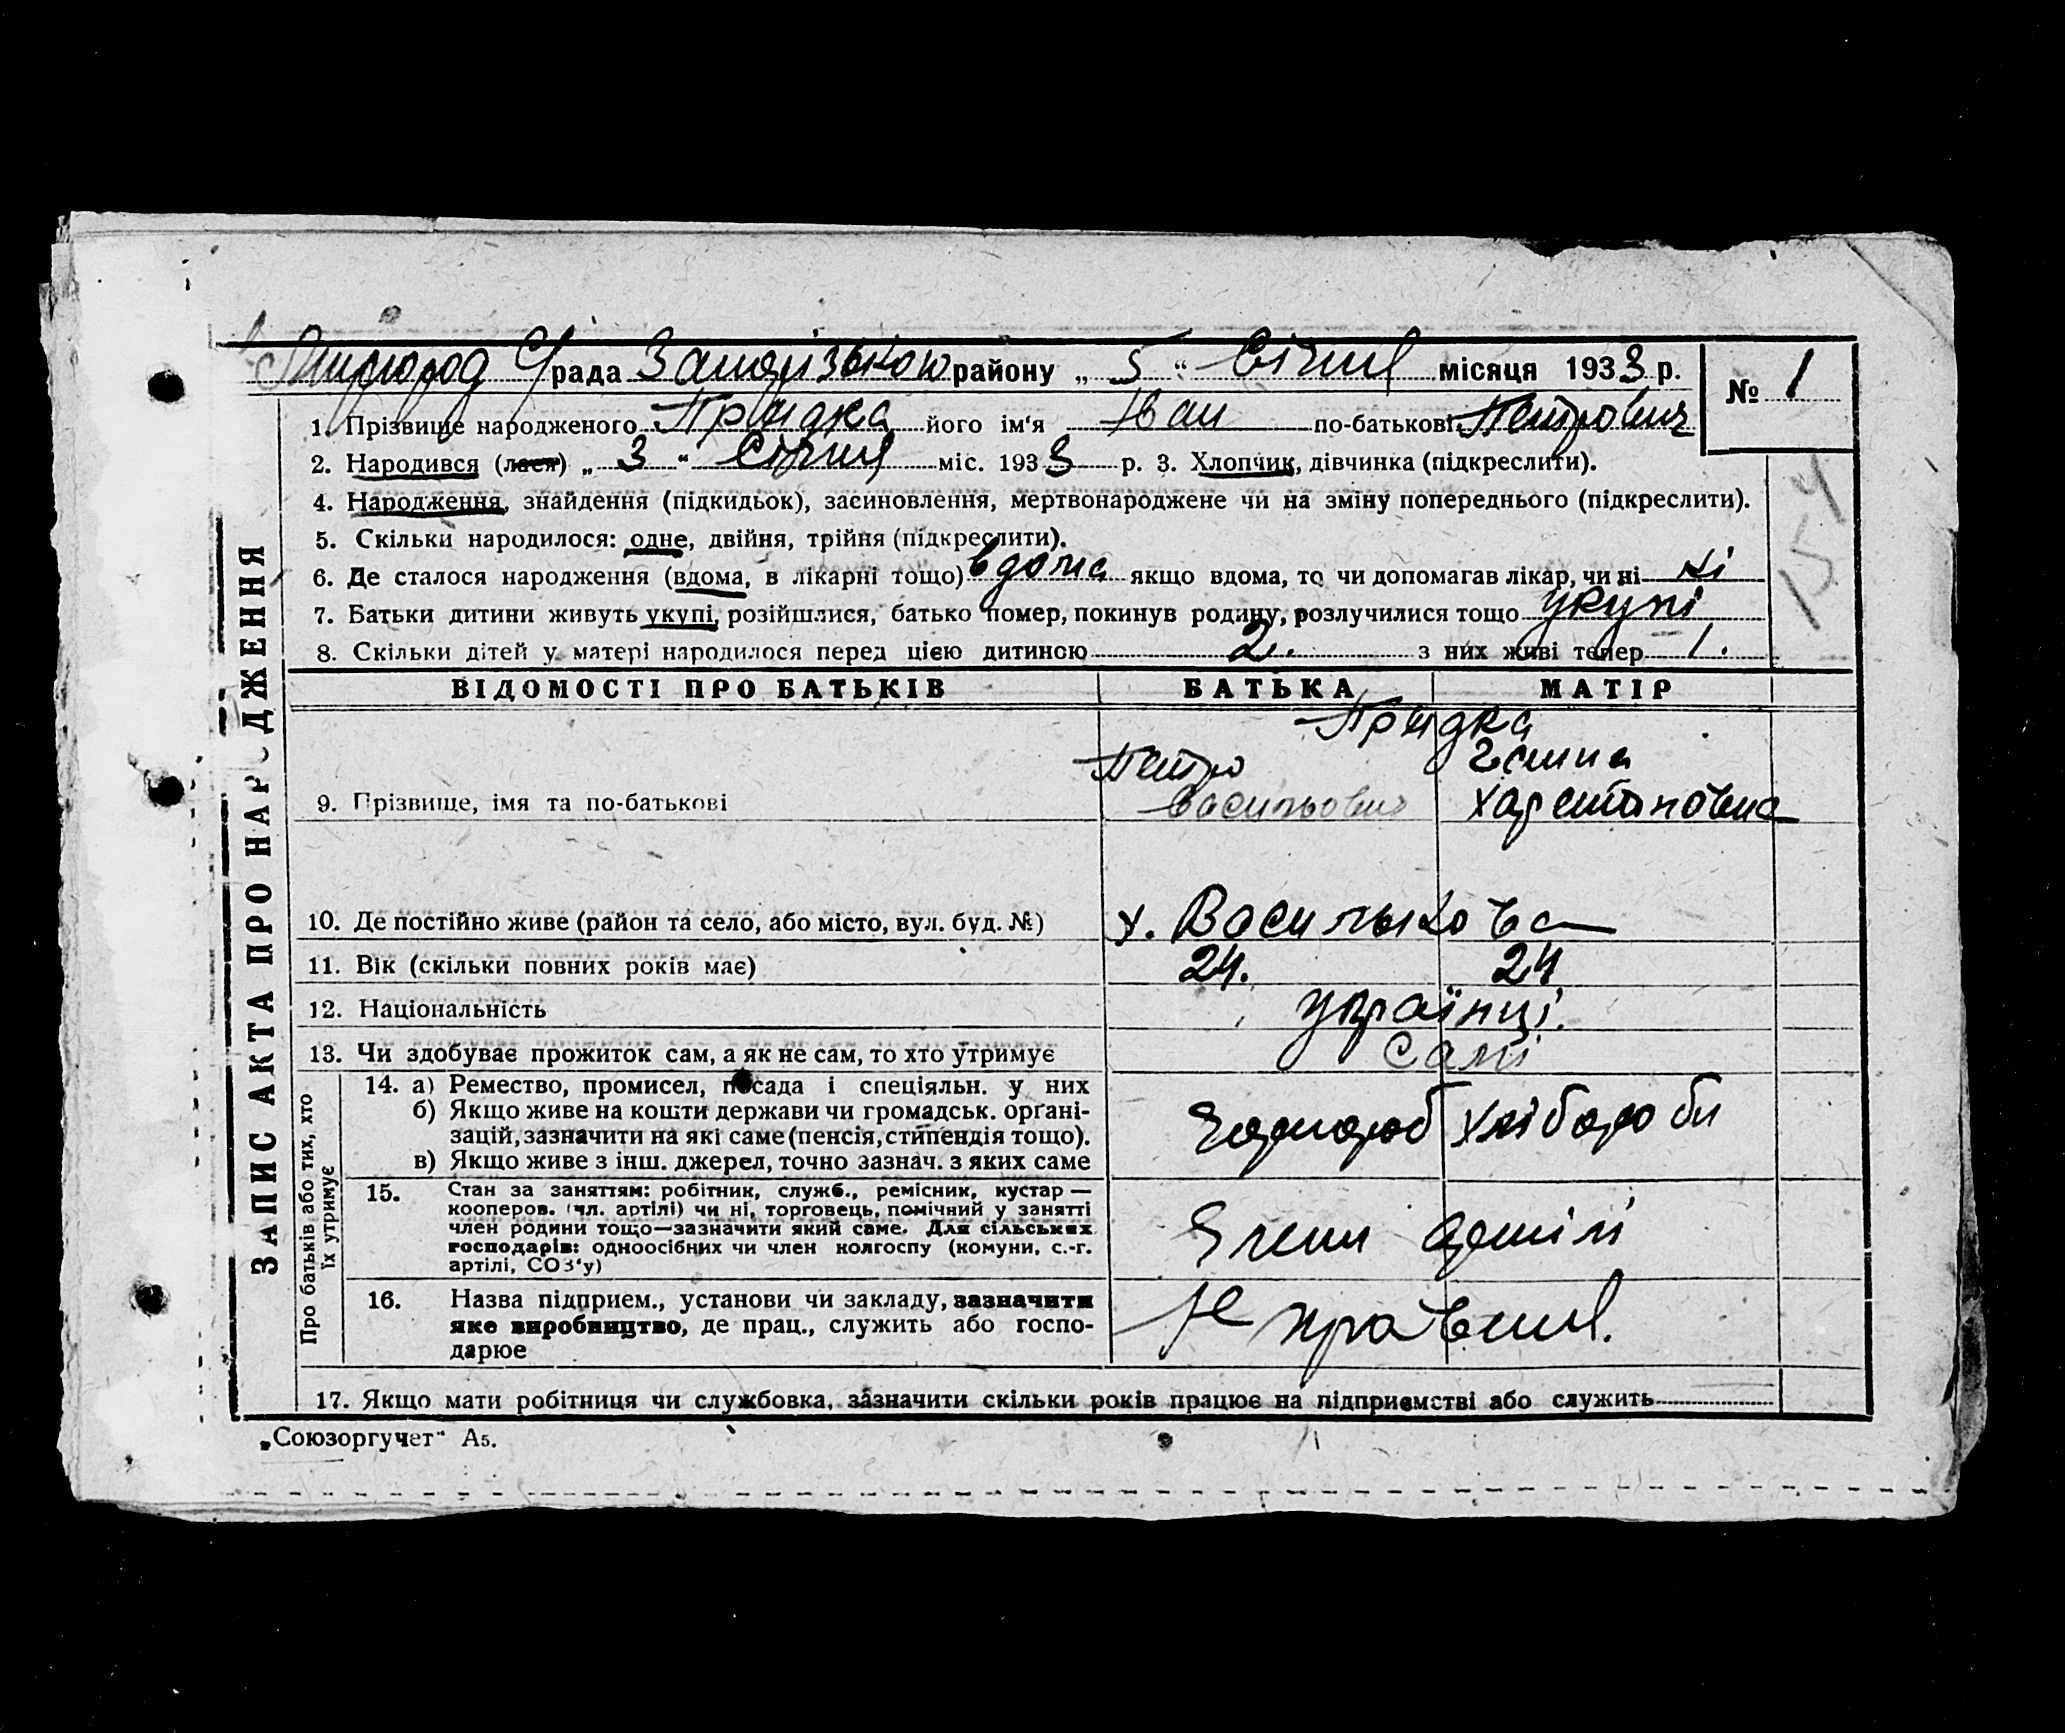 Миргород С/рада Запорізького району „ 5 “ Січня місяця 1933 р.
№ 1
1. Прізвище народженого Прядка його ім'я Іван по-батькові Петрович
2. Народився (лася) „ 3 “ Січня міс. 1933 р. 3. Хлопчик, дівчинка (підкреслити).
4. Народження, знайдення (підкидьок), засиновлення, мертвонароджене чи на зміну попереднього (підкреслити).
5. Скільки народилося: одне, двійня, трійня (підкреслити).
6. Де сталося народження (вдома, в лікарні тощо) вдома якщо вдома, то чи допомагав лікар, чи ні ні
7. Батьки дитини живуть укупі, розійшлися, батько помер, покинув родину, розлучилися тощо укупі
8. Скільки дітей у матері народилося перед цією дитиною 2. з них живі тепер 1.
154
ЗАПИС АКТА ПРО НАРОДЖЕННЯ
ВІДОМОСТІ ПРО БАТЬКІВ БАТЬКА МАТІР
Прядка
9. Прізвище, імя та по-батькові Петро Васильович Ганна Харитоновна
10. Де постійно живе (район та село, або місто, вул. буд. №) х. Васильковка
11. Вік (скільки повних років має) 24. 24
12. Національність українці.
13. Чи здобуває прожиток сам, а як не сам, то хто утримує самі
Про батьків або тих, хто їх утримує
14. а) Ремество, промисел, посада і спеціяльн. у них
б) Якщо живе на кошти держави чи громадськ. органі-
зацій, зазначити на які саме (пенсія, стипендія тощо).
в) Якщо живе з інш. джерел, точно зазнач. з яких саме
хлібороби
15. Стан за заняттям: робітник, служб., ремісник, кустар —
кооперов. (чл. артілі) чи ні, торговець, помічний у занятті
член родини тощо—зазначити який саме. Для сільських
господарів: одноосібних чи член колгоспу (комуни, с.-г.
артілі, СОЗ'у)
Члени артілі
16. Назва підприєм., установи чи закладу, зазначити
яке виробництво, де прац., служить або госпо-
дарює
17. Якщо мати робітниця чи службовка, зазначити скільки років працює на підприємстві або служить
„Союзоргучет“ А5.